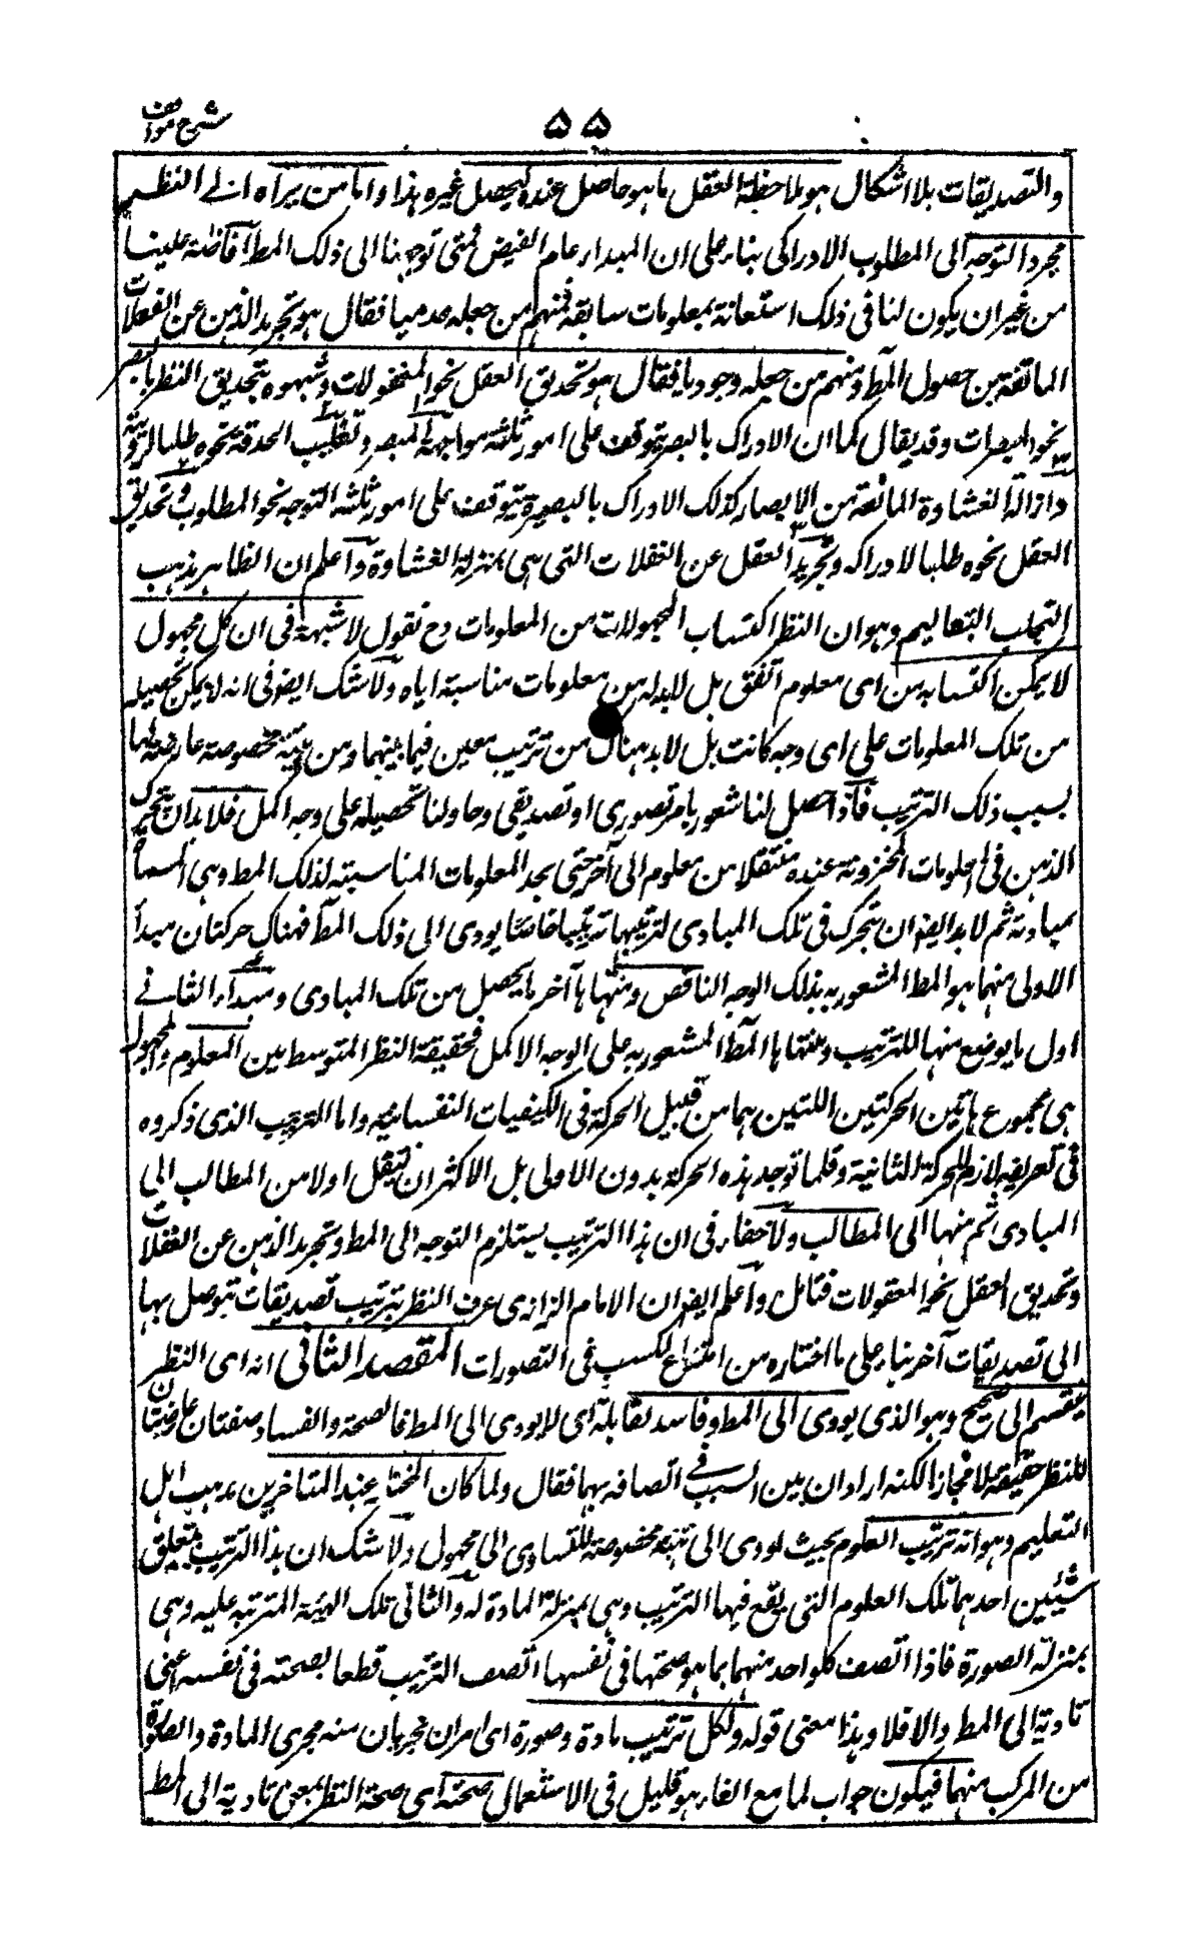 شرح مواقف
۵۵
والتصديقات بلا اشكال هو ملاحظة العقل ما هو حاصل عنده ليحصل غيره هذا واما من يراه اى النظر
مجرد التوجه الى المطلوب الادراكى بناء على ان المبداء عام الفيض فمتى توجهنا الى ذلك المط افاضة علينا
من غير ان يكون لنا فى ذلك استعانة بمعلومات سابقة فمنهم من جعله عدميا فقال هو تجريد الذهن عن الغفلات
المانعة من حصول المط ومنهم من جعله وجوديا فقال هو تحديق العقل نحو المعقولات وشبهوه بتحديق النظر بالبصر
نحو المبصرات وقد يقال كما ان الادراك بالبصر يتوقف على امور ثلثة مواجهة المبصر وتقليب الحدقة نحوه طلبا لرؤيته
وازالة الغشاوة المانعة من الابصار كذلك الادراك بالبصيرة يتوقف على امور ثلثة التوجه نحو المطلوب وتحديق
العقل نحوه طلبا لادراكه وتجريد العقل عن الغفلات التى هى بمنزلة الغشاوة واعلم ان الظاهر مذهب
اصحاب التعاليم وهو ان النظر اكتساب المجهولات من المعلومات وح نقول لا شبهة فى ان كل مجهول
لا يمكن اكتسابه من اى معلوم اتفق بل لا بد له من معلومات مناسبة اياه ولا شك ايضا فى انه لا يمكن تحصيله
من تلك المعلومات على اى وجه كانت بل لا بد هناك من ترتيب معين فيما بينهما ومن هيئة مخصوصة عارضة لها
بسبب ذلك الترتيب فاذا حصل لنا شعور بامر تصورى او تصديقى وحاولنا تحصيله على وجه اكمل فلا بد ان يتحرك
الذهن فى المعلومات المخزونة عنده منتقلا من معلوم الى آخر حتى يجد المعلومات المناسبة لذلك المط وهى المسماة
بمباديه ثم لا بد ايضا ان يتحرك فى تلك المبادى لترتيبها ترتيبا خاصا يؤدى الى ذلك المط فهناك حركتان مبدأ
الاولى منهما هو المط المشعور به بذلك الوجه الناقص ومنتهاها آخر ما يحصل من تلك المبادى ومبداء الثانى
اول ما يوضع منها للترتيب ومنتهاها المط المشعور به على الوجه الاكمل فحقيقة النظر المتوسط بين المعلوم والمجهول
هى مجموع هاتين الحركتين اللتين هما من قبيل الحركة فى الكيفيات النفسانية واما الترتيب الذى ذكروه
فى تعريفه لازم للحركة الثانية وقلما توجد هذه الحركة بدون الاولى بل الاكثر ان ينتقل اولا من المطالب الى
المبادى ثم منها الى المطالب ولا خفاء فى ان هذا الترتيب يستلزم التوجه الى المط وتجريد الذهن عن الغفلات
وتحديق العقل نحو المعقولات فتامل واعلم ايضا ان الامام الرازى عرف النظر بترتيب تصديقات يتوصل بها
الى تصديقات آخر بناء على ما اختاره من امتناع الكسب فى التصورات المقصد الثانى انه اى النظر
ينقسم الى صحيح وهو الذى يودى الى المط وفاسد يقابله اى لا يودى الى المط فالصحة والفساد صفتان عارضتان
للنظر حقيقة لا مجازا لكنه اراد ان يبين السبب فى اتصافه بهما فقال ولما كان المختار عند المتاخرين مذهب اهل
التعليم وهو انه ترتيب العلوم بحيث يودى الى هيئة مخصوصة للتادى الى مجهول ولا شك ان هذا الترتيب يتعلق
شيئين احدهما تلك العلوم التى يقع فيها الترتيب وهى بمنزلة المادة له والثانى تلك الهيئة المترتبة عليه وهى
بمنزلة الصورة فاذا اتصف كل واحد منهما بما هو صحتها فى نفسها اتصف الترتيب قطعا بصحته فى نفسه اعنى
تاديه الى المط والا فلا وهذا معنى قوله ولكل ترتيب مادة وصورة اى امران يجريان منه مجرى المادة والصورة
من المركب منهما فيكون جواب لما مع الفاء وهو قليل فى الاستعمال صحته اى صحة النظر بمعنى تاديه الى المط